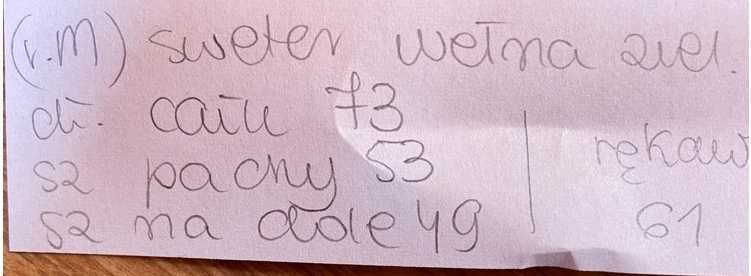 (r.M) sweter wełna ziel.
dł. całk 73
sz pachy 53
sz na dole 49
rękaw
61